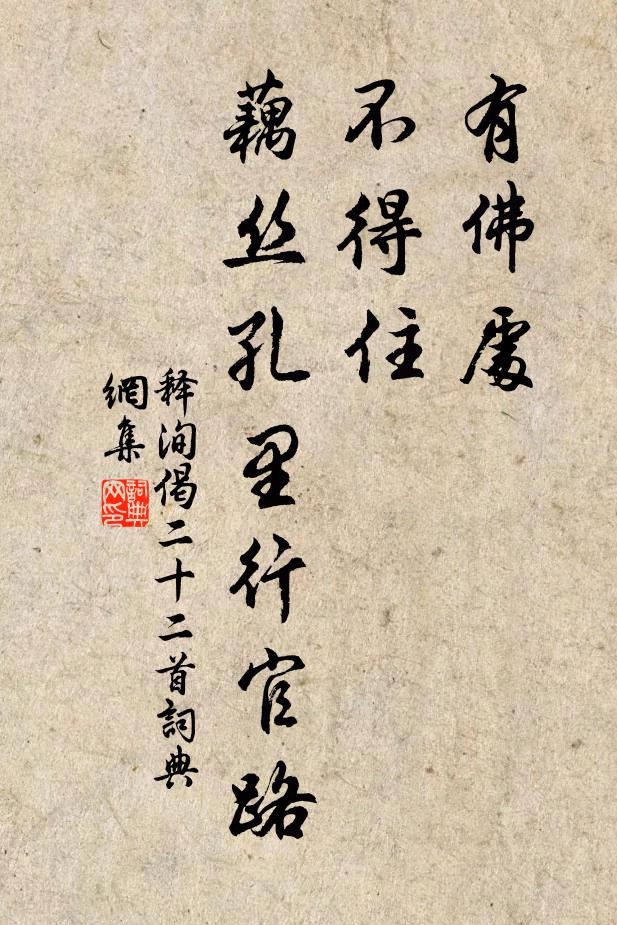 有佛處
不得住
藕丝孔里行官路
释洵偈二十二首詞典
網集
詞典
网印